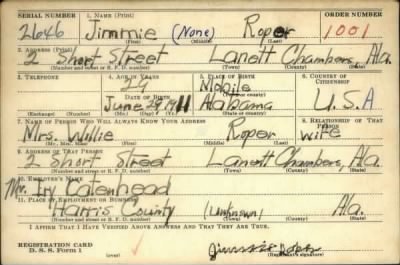 SERIAL NUMBER 1. NAME (Print) ORDER NUMBER
2646 Jimmie (None) Roper 1001
(First) (Middle) (Last)
2. ADDRESS (Print)
2 Short Street Lanett Chambers, Ala.
(Number and street or R. F. D. number) (Town) (County) (State)
3. TELEPHONE 4. AGE IN YEARS 5. PLACE OF BIRTH 6. COUNTRY OF CITIZENSHIP
29 Mobile
DATE OF BIRTH (Town or county)
June 29 1911 Alabama U.S.A
(Exchange) (Number) (Mo.) (Day) (Yr.) (State or country)
7. NAME OF PERSON WHO WILL ALWAYS KNOW YOUR ADDRESS 8. RELATIONSHIP OF THAT PERSON
Mrs. Willie Roper Wife
(Mr., Mrs., Miss) (First) (Middle) (Last)
9. ADDRESS OF THAT PERSON
2 Short Street Lanett Chambers, Ala.
(Number and street or R. F. D. number) (Town) (County) (State)
10. EMPLOYER'S NAME
Mr. Catenhead
11. PLACE OF EMPLOYMENT OR BUSINESS
Harris County (Unknown) Ala.
(Number and street or R. F. D. number) (Town) (County) (State)
I AFFIRM THAT I HAVE VERIFIED ABOVE ANSWERS AND THAT THEY ARE TRUE.
REGISTRATION CARD
D. S. S. Form 1 Jimmie Roper
(Registrant's signature)